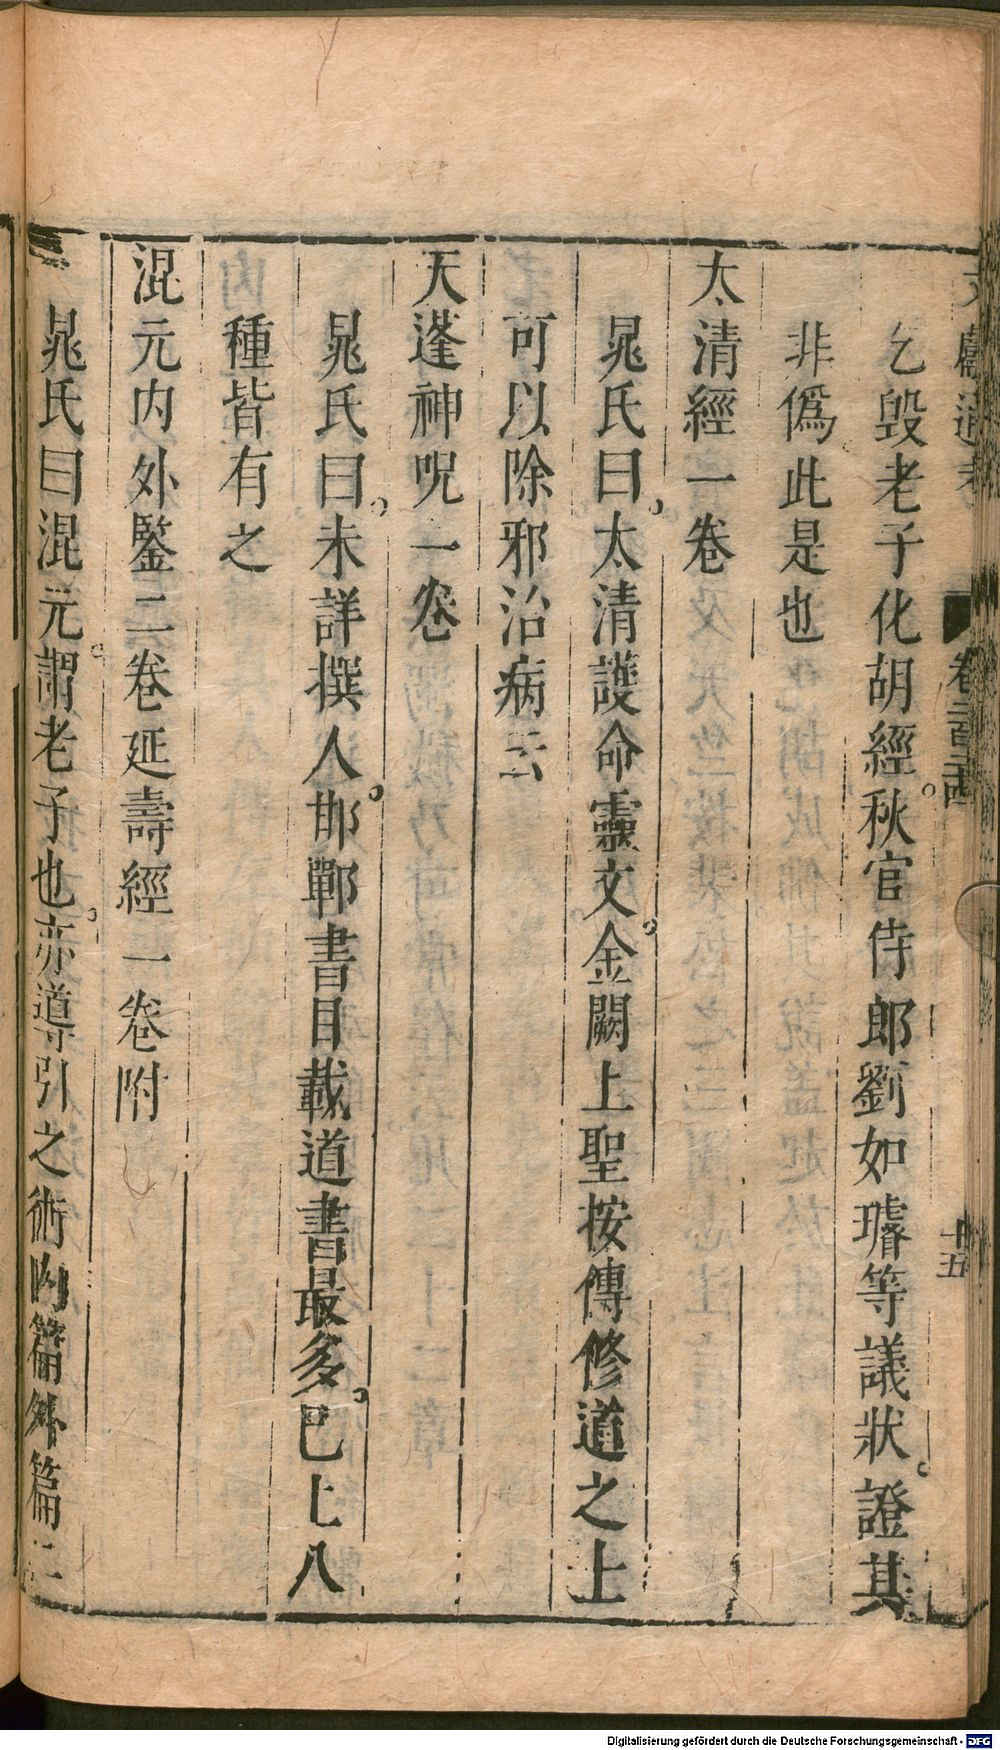 文獻通考 卷二百二十四 十五
乞毀老子化胡經秋官侍郎劉如璿等議狀證其
非僞此是也
太清經一卷
晁氏曰太清護命靈文金闕上聖按傳修道之上
可以除邪治病云
天蓬神呪一卷
晁氏曰未詳撰人邯鄲書目載道書最多已上八
種皆有之
混元内外鑒二卷延壽經一卷附
晁氏曰混元謂老子也亦導引之術内篇外篇二
Digitalisierung gefördert durch die Deutsche Forschungsgemeinschaft - DFG